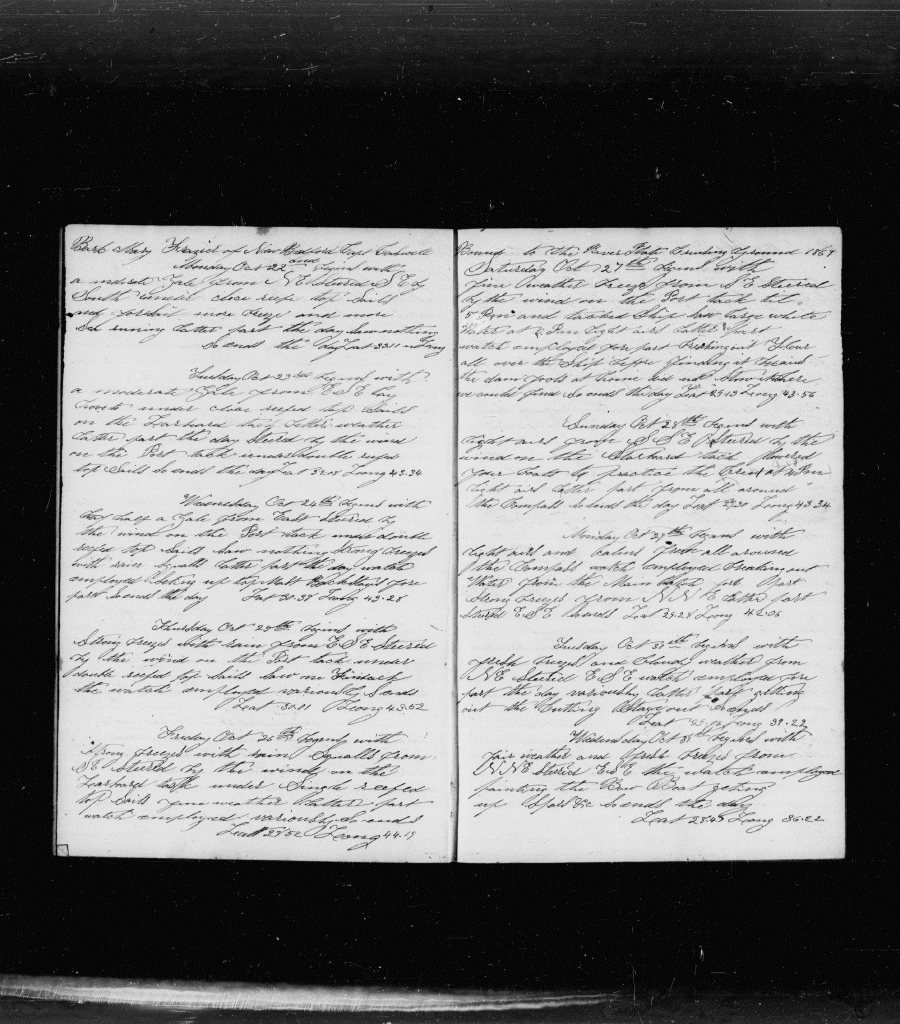 Bark Mary Frazier of New Bedford Capt
Monday Oct 22 and begins with
a moderate Gale from N E steered S E by
South under close reefs top Sails
and foresail more breeze and more
Sea running latter part the day saw nothing
So ends the day Lat 33.11 no Long
Tuesday Oct 23rd begins with
a moderate Gale from E S E lay
under close reefed top Sails
on the Larboard tack better weather
latter part the day steered by the wind
on the Port tack under double reefed
top Sails So ends the day Lat Long 43.34
Wednesday Oct 24th begins with
half a Gale from East steered by
the wind on the Port tack under double
reefed top Sails saw nothing strong breezes
with rain squalls latter part the day watch
employed seting up top Mast fore
part So ends the day Lat 31.38 Long 43.28
Thursday Oct 25th begins with
Strong breezes with rain from E S E steered
by the wind on the Port tack under
double reefed top Sails saw an Finback
the watch employed variously So ends
Lat 30.11 Long 43.52
Friday Oct 26th begins with
Strong breezes with rain squalls from
S E steered by the wind on the
Larboard tack under Single reefed
top Sails fine weather latter part
watch employed variously So ends
Lat 29.52 Long 44.19
Bound to the River Plate Cruising ground 1867
Saturday Oct 27th begins with
fine weather breeze from S E steered
by the wind on the Port tack til
5 Pm and tacked Ship saw large white
Water at 2 Pm light airs latter part
watch employed for part Flour
all over the Ship before finding it I said
the dam fools at home did not Stow it where
we could find So ends the day Lat 29.13 Long 43.56
Sunday Oct 28th begins with
light airs from S S E steered by the
wind on the Starboard tack lowered
four boats to practice the Crew at 4 Pm
light airs latter part from all around
the Compass So ends the day Lat 29.30 Long 43.34
Monday Oct 29th begins with
light airs and calms from all around
the Compass watch employed breaking out
Water from the Main hatch for part
Strong breezes from N N E latter part
steered E S E So ends Lat 29.28 Long 42.06
Tuesday Oct 30th begins with
fresh breezes and cloudy weather from
N E steered E S E watch employed fore
part the day variously latter part getting
out the Cutting Stage out So ends
Lat Long 39.22
Wednesday Oct 31st begins with
fair weather and fresh breezes from
N N E steered E S E the watch employed
painting the Bow Boat getting
up Spars &c So ends the day
Lat 28.49 Long 36.22